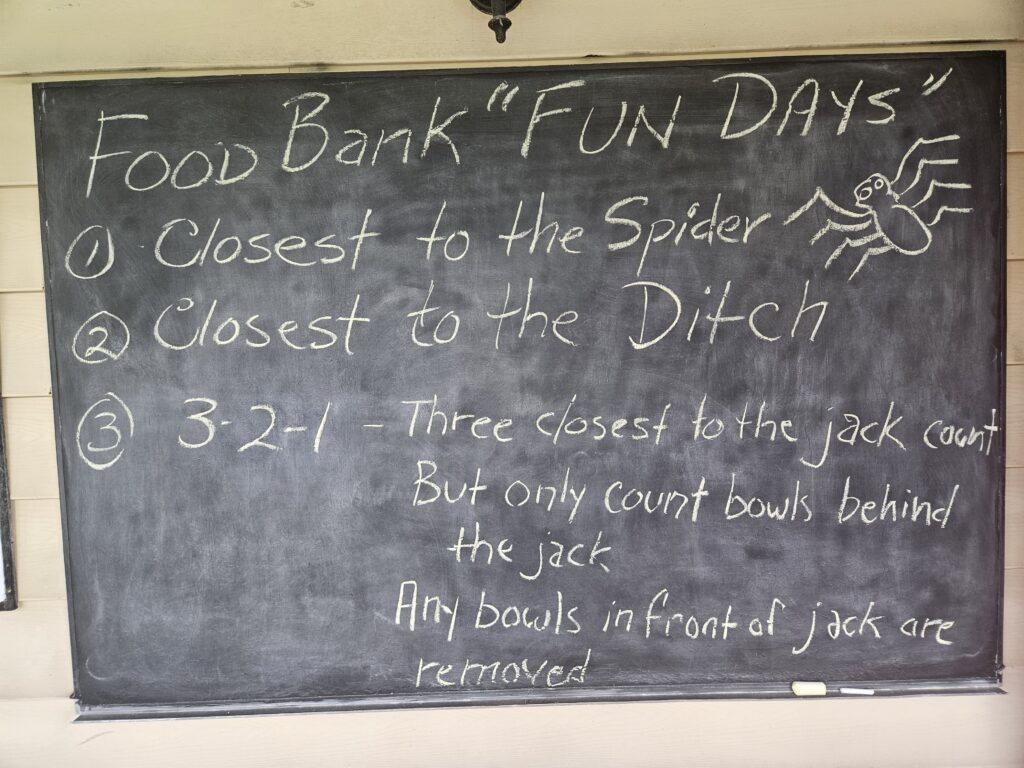 Food Bank "FUN DAYS"
① Closest to the Spider
② Closest to the Ditch
③ 3-2-1 - Three closest to the jack count
But only count bowls behind
the jack
Any bowls in front of jack are
removed